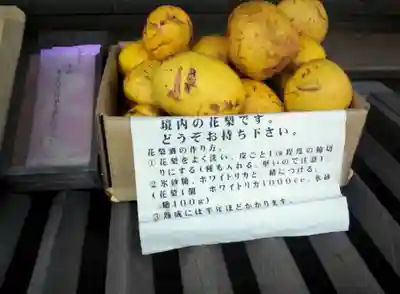 境内の花梨です。
どうぞお持ち下さい。
花梨酒の作り方。
①花梨をよく洗い、皮ごと1㎝程度の輪切
りにする(種も入れる。堅いので注意)
②氷砂糖、ホワイトリカと一緒につける。
(花梨1個 ホワイトリカ1000cc、氷砂
糖400g)
③熟成には半年ほどかかります。